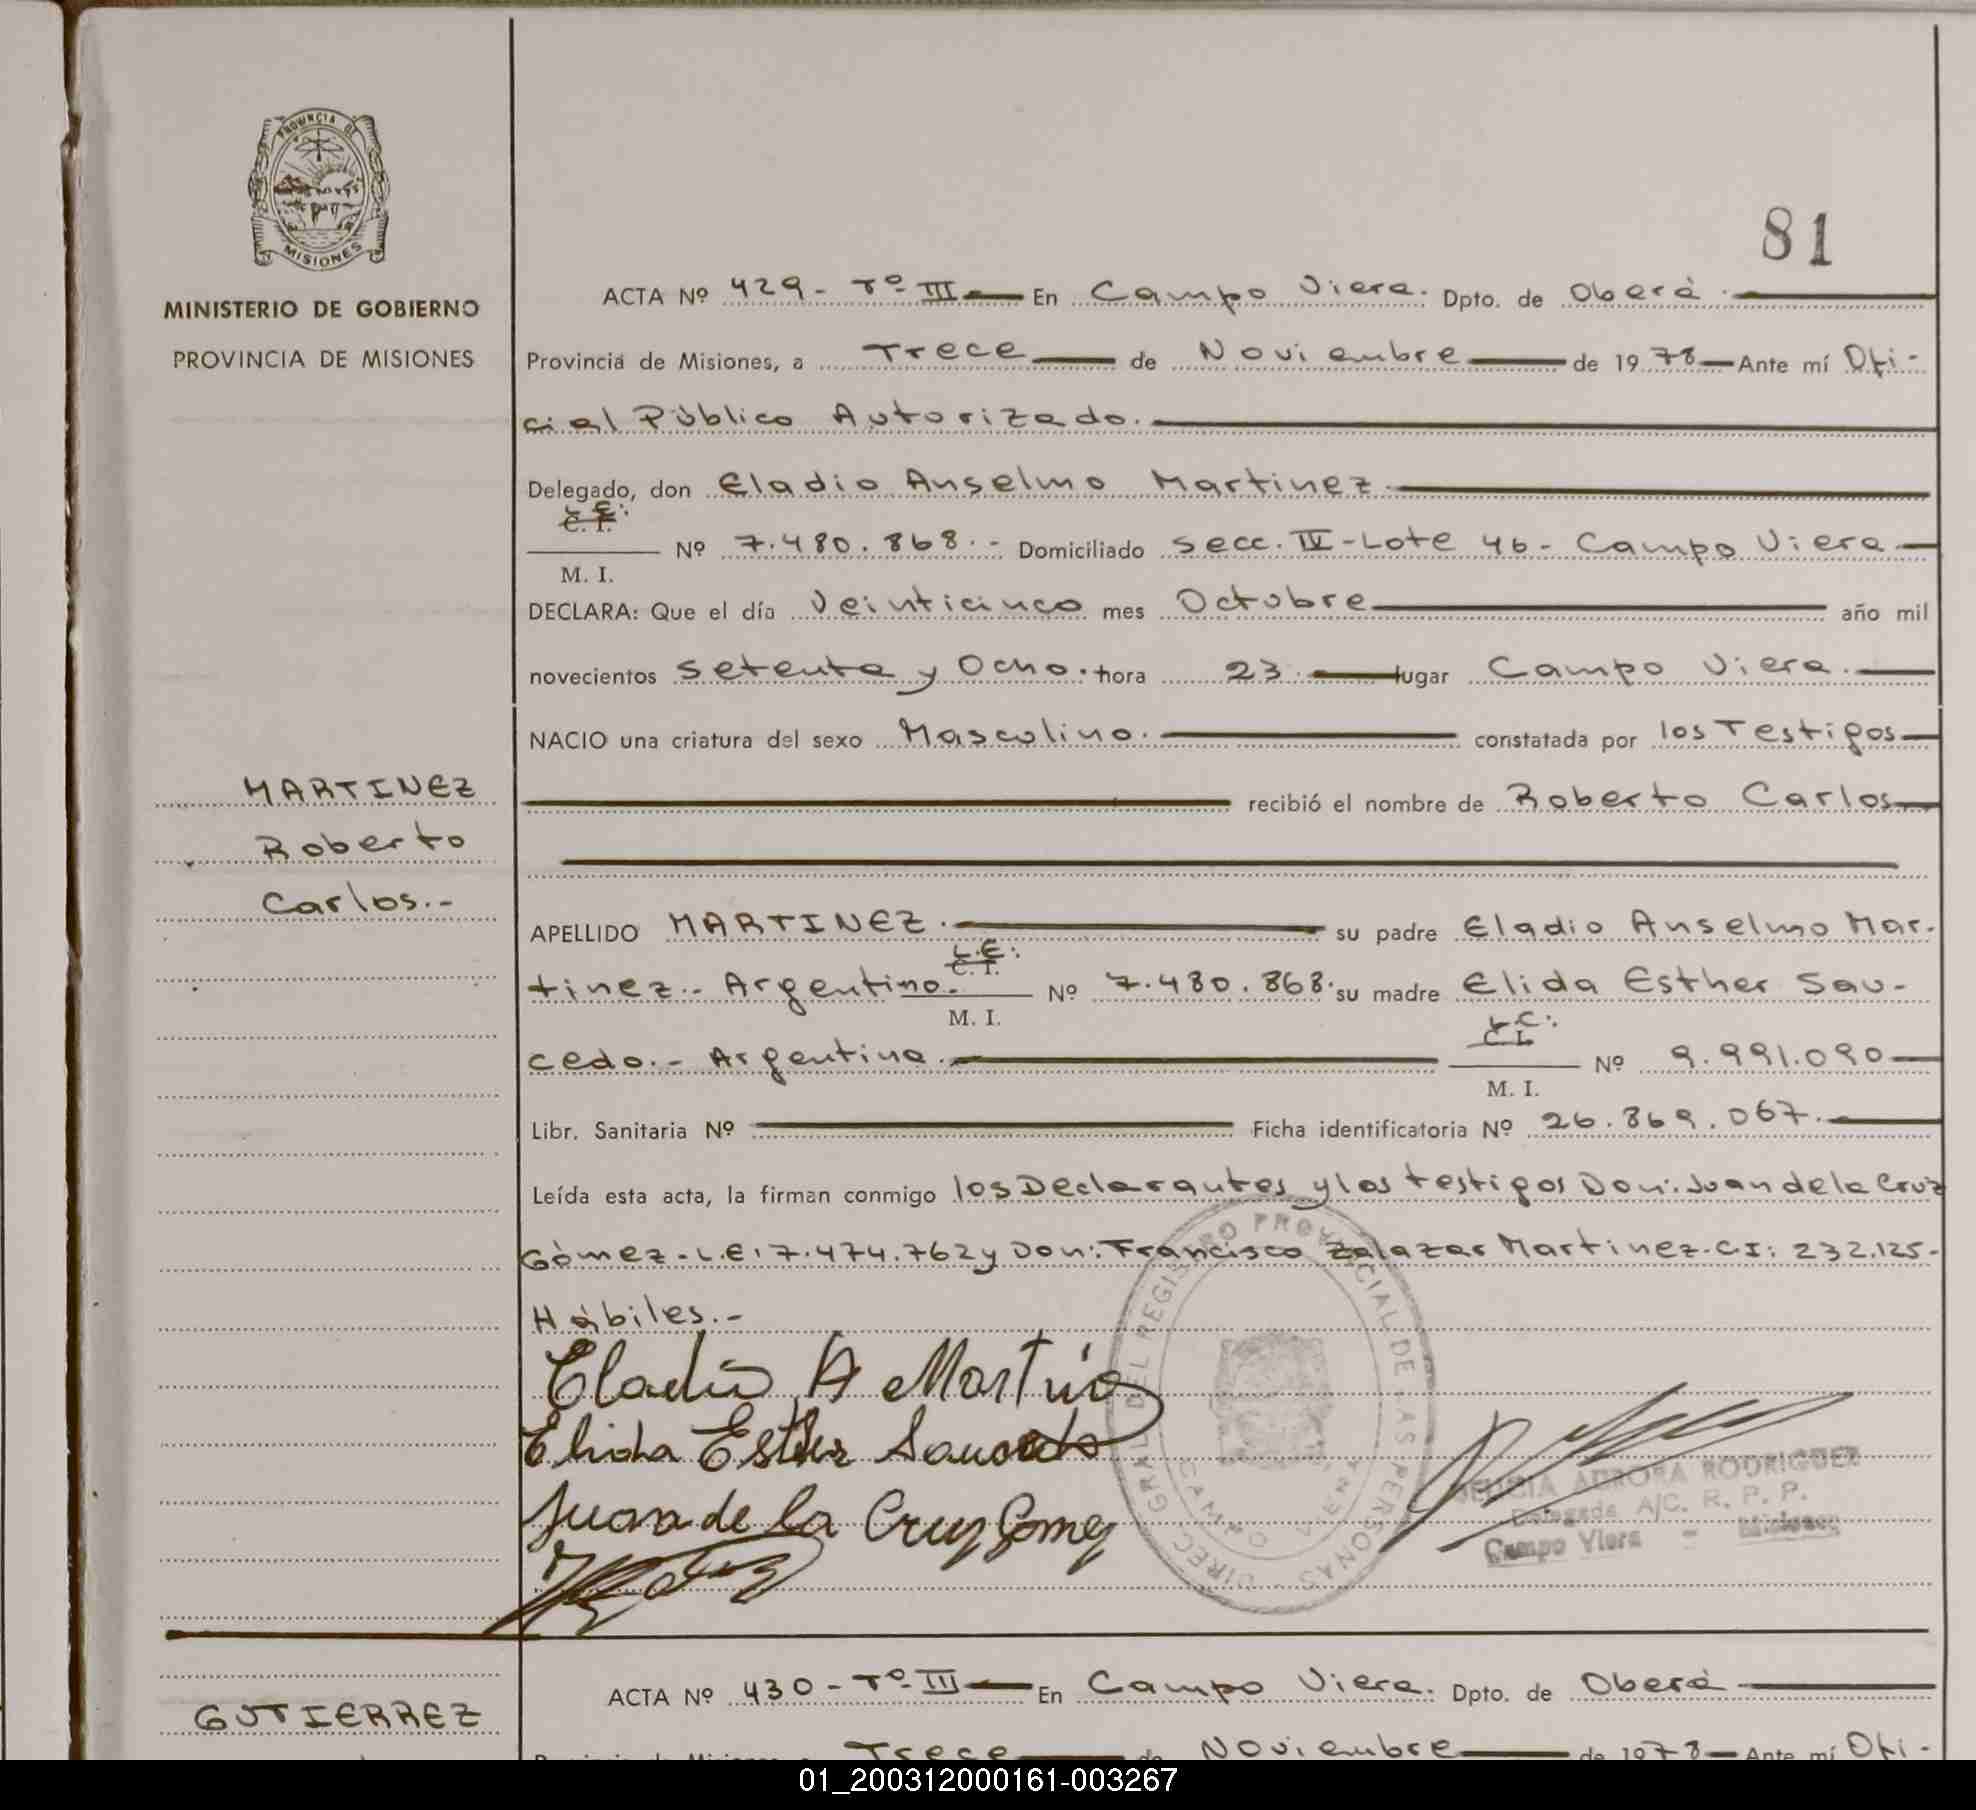 PROVINCIA DE
MISIONES
MINISTERIO DE GOBIERNO
PROVINCIA DE MISIONES
81
ACTA Nº 429 - Tº III En Campo Viera. Dpto. de Oberá.
Provincia de Misiones, a Trece de Noviembre de 1978 Ante mí Ofi-
cial Público Autorizado.
Delegado, don Eladio Anselmo Martinez
L.E.:
C. I.
M. I. Nº 7.480.868.- Domiciliado Secc. IV - Lote 46 - Campo Viera
DECLARA: Que el día Veinticinco mes Octubre año mil
novecientos Setenta y Ocho. hora 23. lugar Campo Viera.
NACIO una criatura del sexo Masculino. constatada por los Testigos
recibió el nombre de Roberto Carlos
MARTINEZ
Roberto
Carlos.-
APELLIDO MARTINEZ. su padre Eladio Anselmo Mar-
L.E:
C. I.
tinez.- Argentino. M. I. Nº 7.480.868. su madre Elida Esther Sau-
L.C:
C. I.
cedo.- Argentina. M. I. Nº 9.991.090
Libr. Sanitaria Nº Ficha identificatoria Nº 26.869.067.
Leída esta acta, la firman conmigo los Declarantes y los testigos Don: Juan de la Cruz
Gómez - L.E: 7.474.762 y Don: Francisco Zalazar Martinez. C.I: 232.125.-
Hábiles.-
Eladio A Martinez
Elida Esther Saucedo
Juan de la Cruz Gomez
DIREC. GRAL. DEL REGISTRO PROVINCIAL DE LAS PERSONAS
CAMPO VIERA
AURORA RODRIGUEZ
Delegada A/C. R. P. P.
Campo Viera - Misiones
GUTIERREZ
ACTA Nº 430 - Tº III En Campo Viera. Dpto. de Oberá
Provincia de Misiones, a Trece de Noviembre de 1978 Ante mí Ofi-
01_200312000161-003267